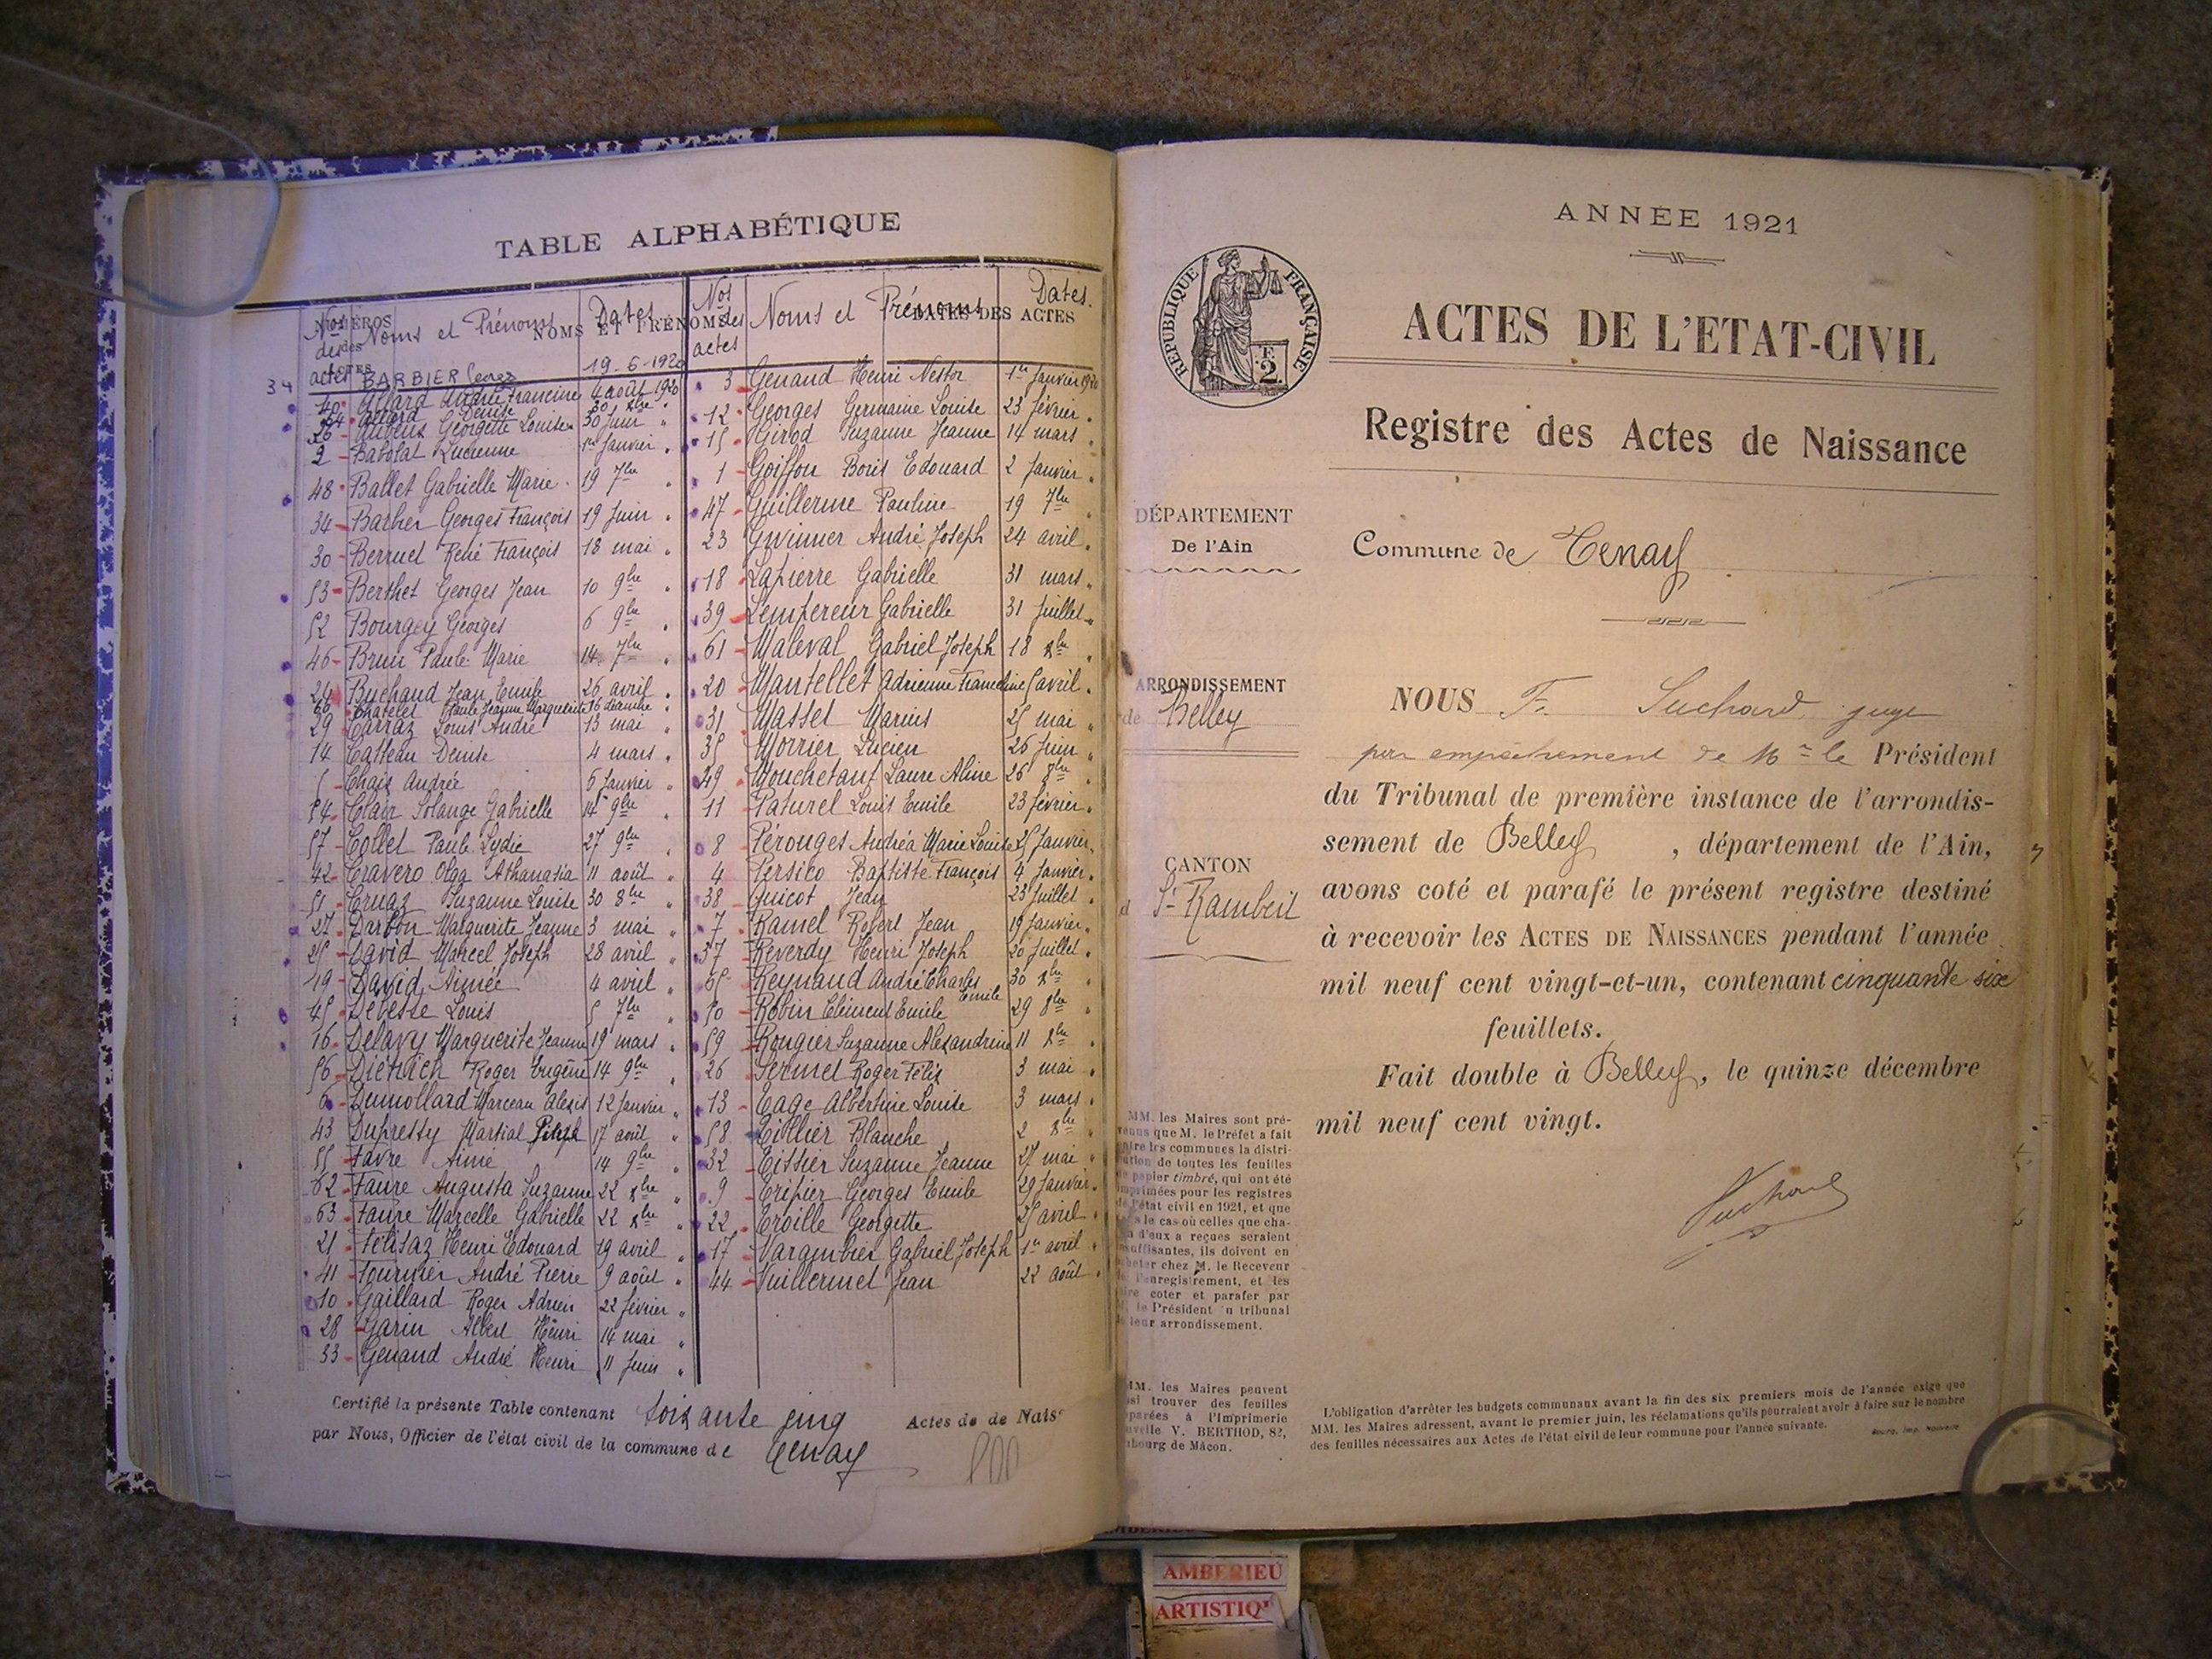 TABLE ALPHABÉTIQUE
Nos des actes Noms et Prénoms Dates
NUMÉROS des ACTES NOMS ET PRÉNOMS DATES DES ACTES
34 BARBIER Georges 19-6-1920
40 Francine 4 août 1920
Denise 30 xbre "
36 Georgette Louise 30 Juin "
2 Babolat Lucienne 1er Janvier "
48 Ballet Gabrielle Marie 19 7bre "
34 Barbier Georges François 19 Juin "
30 Berruet René François 18 mai "
53 Berthet Georges Jean 10 9bre "
52 Bourgey Georges 6 9bre "
46 Brun Paule Marie 14 7bre "
24 Buchaud Jean Emile 26 avril "
Chatelet Paule Jeanne Marguerite 16 décembre
29 Carraz Louis André 13 mai "
14 Catteau Denise 4 mars "
5 Chaix Andrée 5 Janvier "
54 Clair Solange Gabrielle 14 9bre "
57 Collet Paule Lydie 27 9bre "
42 Cravero Olga Athanasia 11 août "
51 Cruaz Suzanne Louise 30 8bre "
27 Darbon Marguerite Jeanne 3 mai "
25 David Marcel Joseph 28 avril "
19 David Aimée 4 avril "
45 Debesse Louis 5 7bre "
16 Delavy Marguerite Jeanne 19 mars "
56 Dietrich Roger Eugène 14 9bre "
6 Dumollard Marceau Alexis 12 Janvier "
43 Dupressy Martial 17 août "
55 Favre Aimé 14 9bre "
62 Faure Augusta Suzanne 22 xbre "
63 Faure Marcelle Gabrielle 22 xbre "
21 Félisaz Henri Edouard 19 avril "
41 Fournier André Pierre 9 août "
10 Gaillard Roger Adrien 22 février "
28 Garin Albert Henri 14 mai "
33 Genand André Henri 11 Juin "
Nos des actes Noms et Prénoms Dates.
3 Genand Henri Nestor 1er Janvier 1920
12 Georges Germaine Louise 23 février "
15 Girod Suzanne Jeanne 14 mars "
1 Goiffon Boris Edouard 2 Janvier "
47 Guillerme Pauline 19 7bre "
23 Gwinner André Joseph 24 avril "
18 Lapierre Gabrielle 31 mars "
39 Lempereur Gabrielle 31 Juillet "
61 Maleval Gabriel Joseph 18 xbre "
20 Mantellet Adrienne Francéline 5 avril "
31 Masset Marius 25 mai "
35 Morrier Lucien 26 Juin "
49 Mouchetant Laure Aline 26 8bre "
11 Paturel Louis Emile 23 février "
8 Pérouges Andréa Marie Louise 25 Janvier "
4 Persico Baptiste François 4 Janvier "
38 Quicot Jean 23 Juillet "
7 Ramel Robert Jean 19 Janvier "
37 Reverdy Henri Joseph 20 Juillet "
65 Reynaud André Charles Emile 30 xbre "
50 Robin Clément Emile 29 8bre "
59 Rougier Suzanne Alexandrine 11 xbre "
26 Sermet Roger Félix 3 mai "
13 Tage Albertine Louise 3 mars "
58 Tillier Blanche 2 xbre "
32 Tissier Suzanne Jeanne 27 mai "
9 Tripier Georges Emile 29 Janvier "
22 Troille Georgette 25 avril "
17 Varambier Gabriel Joseph 1er avril "
44 Vuillermet Jean 22 août "
Certifié la présente Table contenant soixante cinq Actes de de Naisce
par Nous, Officier de l'état civil de la commune de Tenay
ANNÉE 1921
REPUBLIQUE FRANÇAISE
2
ACTES DE L'ETAT-CIVIL
Registre des Actes de Naissance
DÉPARTEMENT
De l'Ain
Commune de Tenay
ARRONDISSEMENT
de Belley
CANTON
d St Rambert
NOUS F. Suchard, juge
par empêchement de Mr le Président
du Tribunal de première instance de l'arrondis-
sement de Belley , département de l'Ain,
avons coté et parafé le présent registre destiné
à recevoir les ACTES DE NAISSANCES pendant l'année
mil neuf cent vingt-et-un, contenant cinquante six
feuillets.
Fait double à Belley, le quinze décembre
mil neuf cent vingt.
Suchard
MM. les Maires sont pré-
venus que M. le Préfet a fait
entre les communes la distri-
bution de toutes les feuilles
de papier timbré, qui ont été
imprimées pour les registres
de l'état civil en 1921, et que
le cas où celles que cha-
d'eux a reçues seraient
insuffisantes, ils doivent en
acheter chez M. le Receveur
de l'enregistrement, et les
faire coter et parafer par
le Président u tribunal
de leur arrondissement.
MM. les Maires peuvent
trouver des feuilles
préparées à l'Imprimerie
Nouvelle V. BERTHOD, 82,
faubourg de Mâcon.
L'obligation d'arrêter les budgets communaux avant la fin des six premiers mois de l'année exige que
MM. les Maires adressent, avant le premier juin, les réclamations qu'ils pourraient avoir à faire sur le nombre
des feuilles nécessaires aux Actes de l'état civil de leur commune pour l'année suivante.
Bourg, Imp. Nouvelle
AMBERIEU
ARTISTIQ